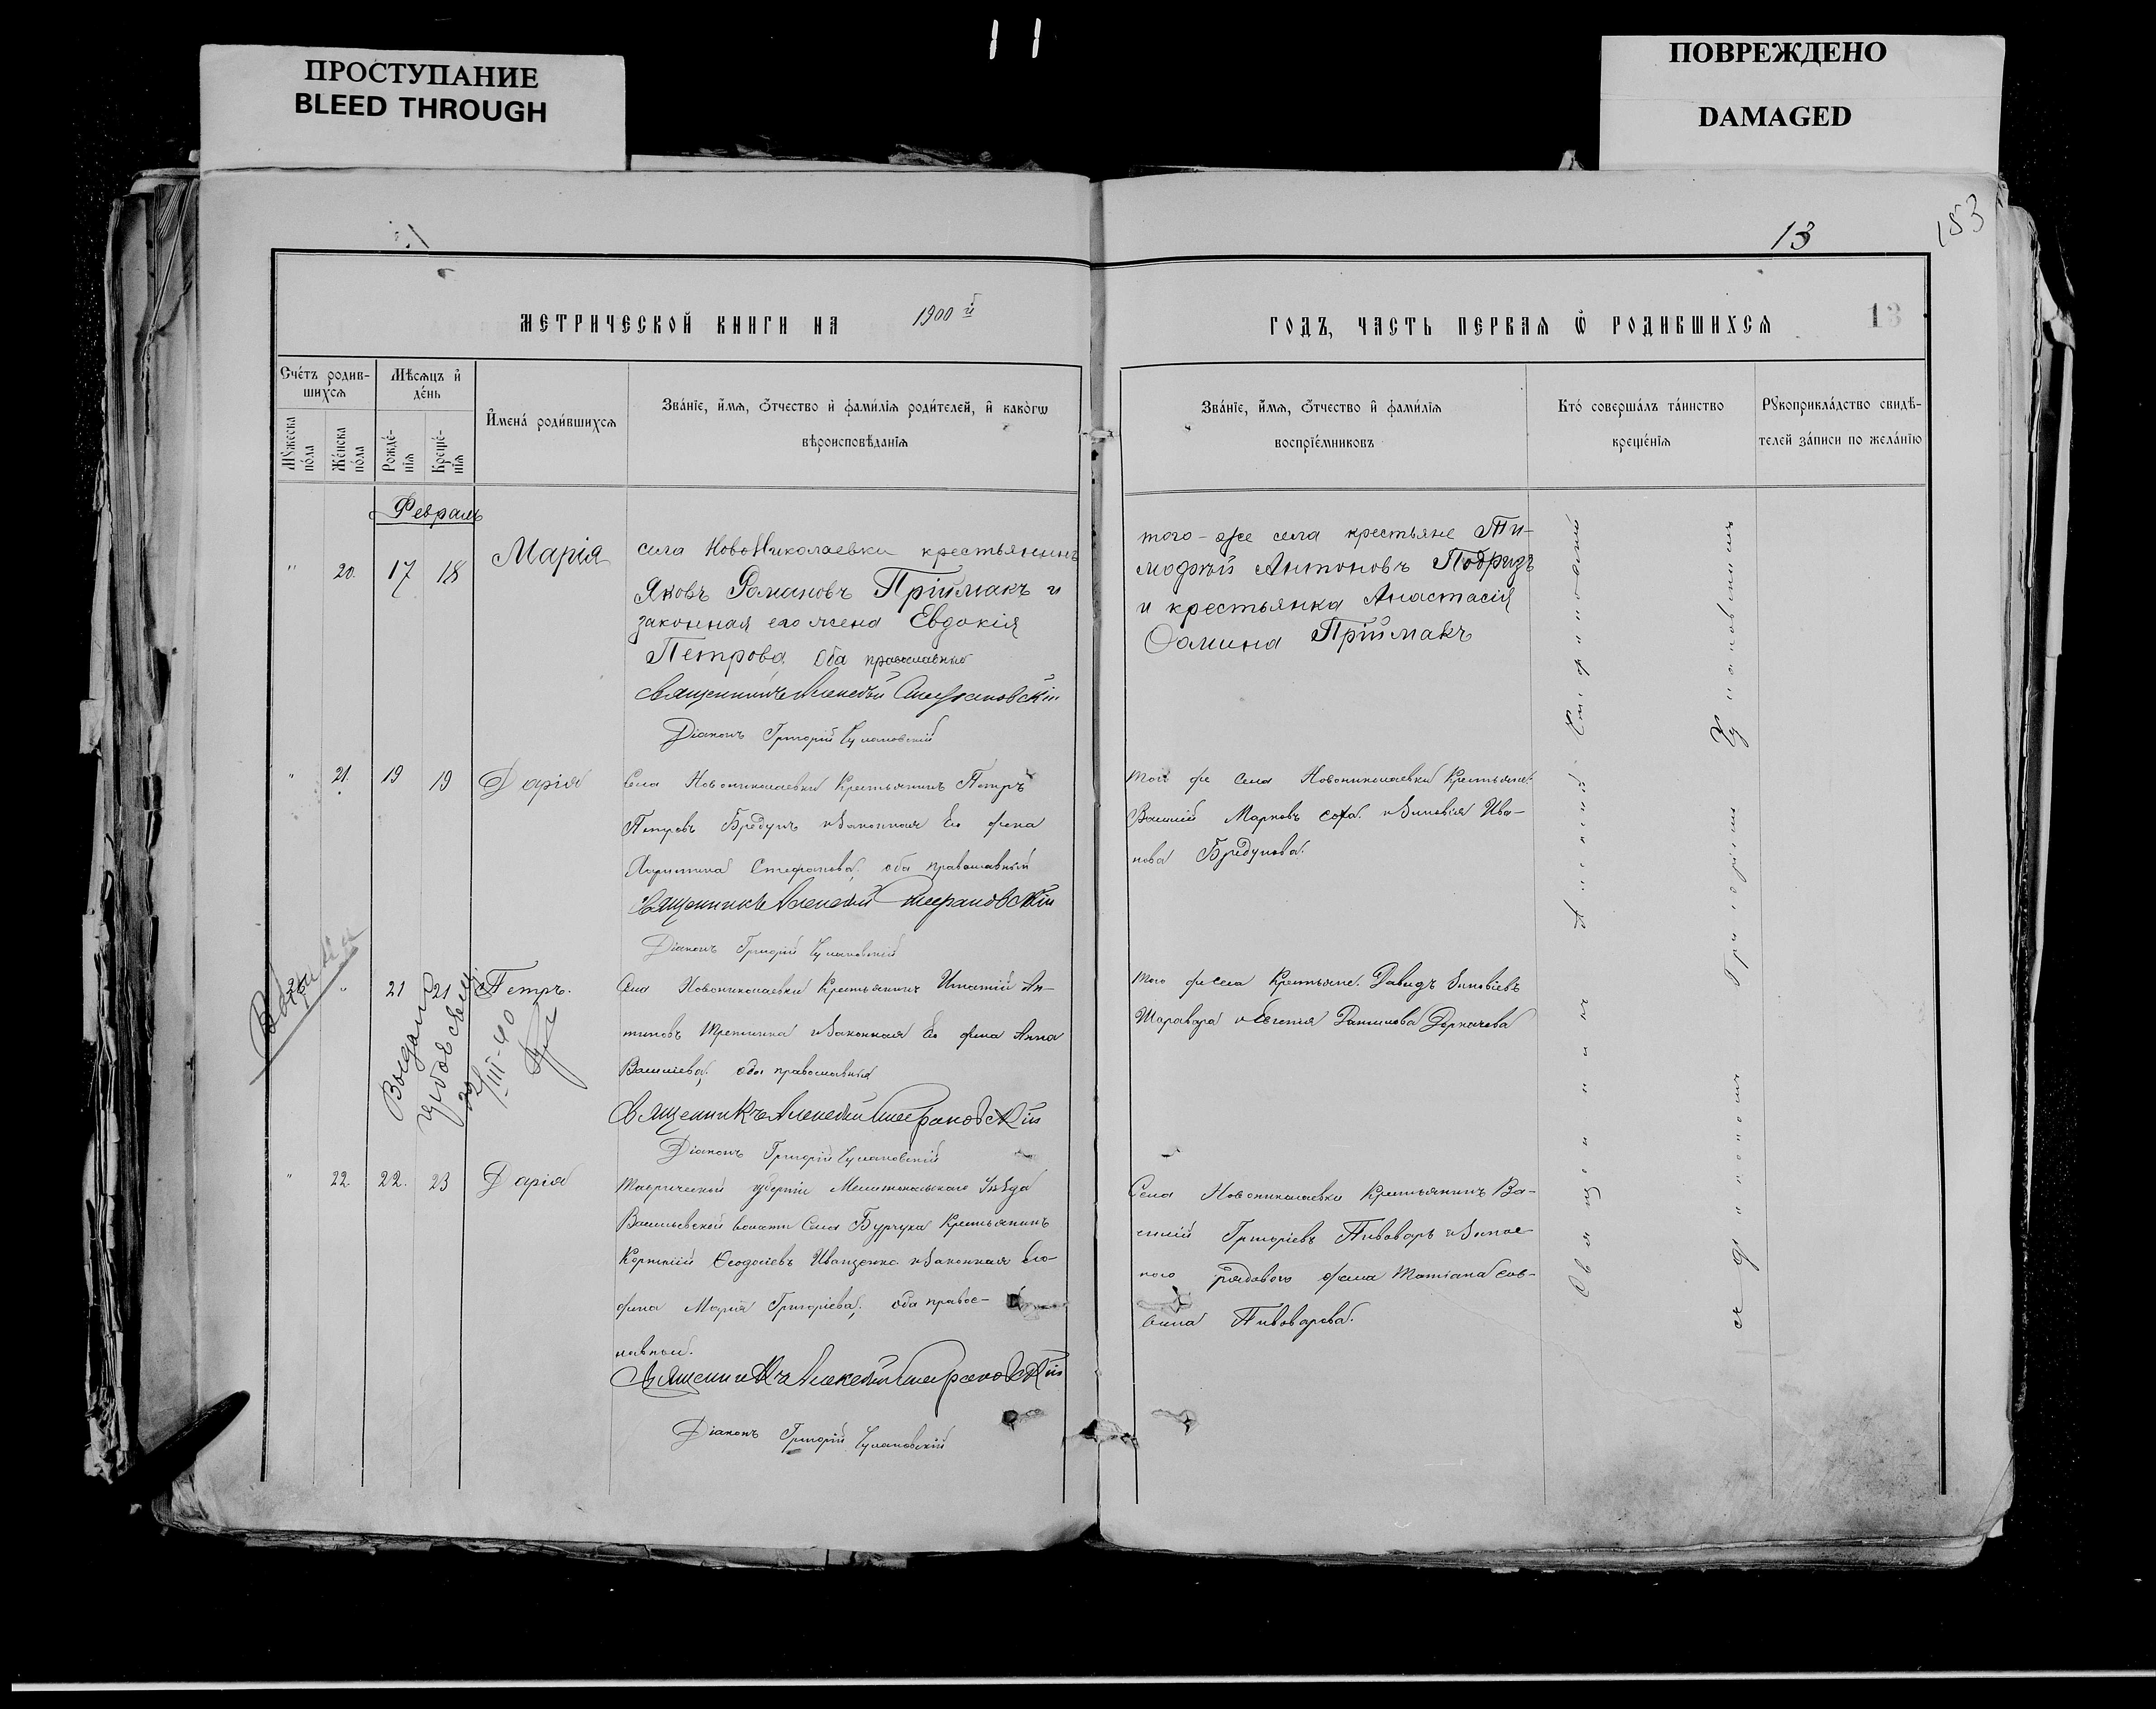 11
ПРОСТУПАНИЕ
BLEED THROUGH
ПОВРЕЖДЕНО
DAMAGED
153
13
13
МЕТРИЧЕСКОЙ КНИГИ НА 1900й ГОДЪ, ЧАСТЬ ПЕРВАЯ Ѡ РОДИВШИХСЯ
Счетъ родив-
шихся
Мѣсяцъ и
день
Мужеска
пола
Женска
пола
Рожде-
нія
Креще-
нія
Имена родившихся
Званіе, имя, отчество и фамилія родителей, и какогѡ
вѣроисповѣданія
Званіе, имя, отчество и фамилія
воспріемниковъ
Кто совершалъ таинство
крещенія
Рукоприкладство свидѣ-
телей записи по желанію
Февраль
" 20. 17 18 Марія
села НовоНиколаевки крестьянинъ
Яковъ Романовъ Пріймакъ и
законная его жена Евдокія
Петрова оба православные
Священникъ Алексѣй Стефановскій
Діаконъ Григорій
того-же села крестьяне Ти-
моѳей Антоновъ Подризъ
и крестьянка Анастасія
Ѳомина Пріймакъ
" 21. 19 19 Дарія
Села Новониколаевки Крестьянинъ Петръ
Петровъ Бредунъ и Законная Его жена
Харитина Стефанова, оба православный
Священникъ Алексѣй Стефановскій
Діаконъ Григорій
того же Села Новониколаевки Крестьяне:
Василій Марковъ и Зиновія Ива-
нова Бредунова.
26 " 21 21 Петръ.
Села Новониколаевки Крестьянинъ Игнатій Ан-
типовъ и Законная Его жена Анна
Василіева, оба православный
Священникъ Алексѣй Стефановскій
Діаконъ Григорій
Того же Села Крестьяне: Давидъ Зиновіевъ
Шаравара и Евгенія Данилова Деркачева
III-40
" 22. 22. 23 Дарія
Таврической губерніи Мелитопольскаго Уѣзда
Васильевской волости Села Бурчука Крестьянинъ
Корнилій Ѳеодосіевъ Иващенко и Законная Его
жена Марія Григоріева, оба правос-
лавный.
Священникъ Алексѣй Стефановскій
Діаконъ Григорій
Села Новониколаевки Крестьянинъ Ва-
силій Григоріевъ Пивоваръ и Запас-
ного рядового жена Татіана Сав-
вина Пивоварова.
Священникъ Алексѣй Стефановскій
съ діакономъ Григоріемъ